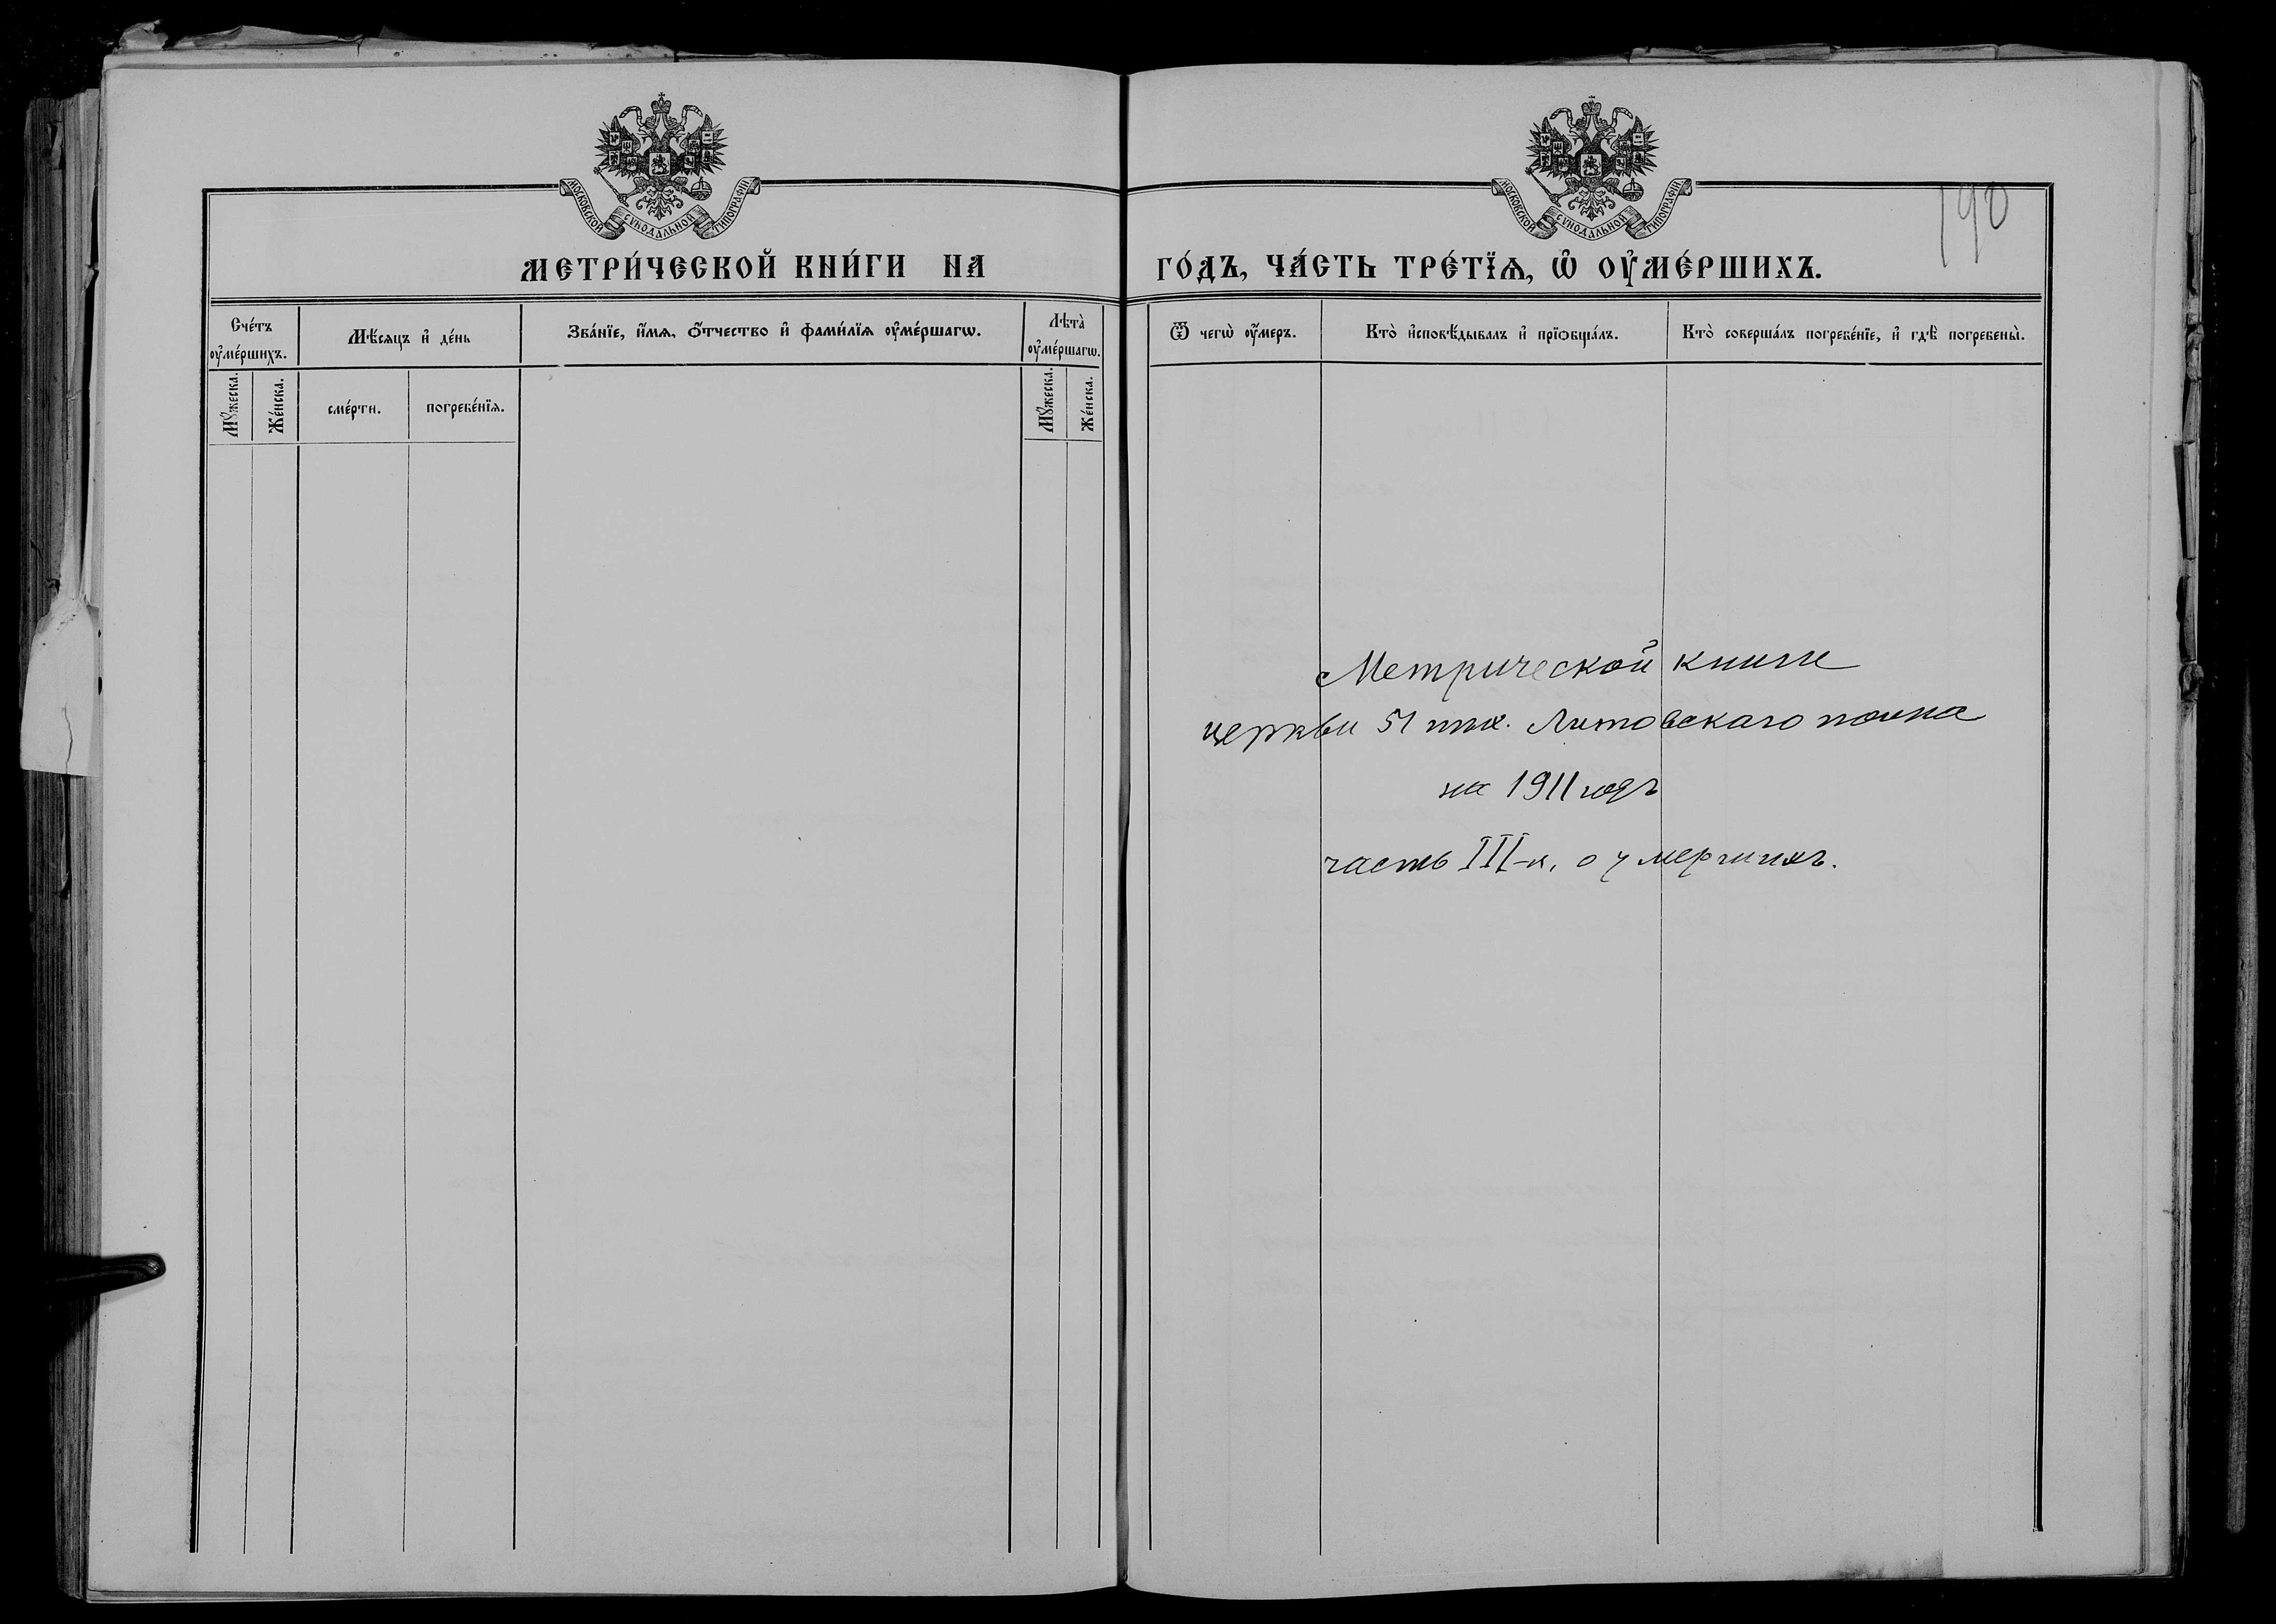 МОСКОВСКОЙ СѴНОДАЛЬНОЙ ТИПОГРАФІИ.
МОСКОВСКОЙ СѴНОДАЛЬНОЙ ТИПОГРАФІИ.
190
МЕТРИ́ЧЕСКОЙ КНИ́ГИ НА ГО́ДЪ, ЧА́СТЬ ТРЕ́ТЇѦ, Ѡ҆ ОУ҆МЕ́РШИХЪ.
Сче́тъ
оу҆ме́ршихъ.
Мѣ́сяцъ и҆ де́нь
Зва́нїе, и҆́мѧ, ѻ҆́тчество и҆ фами́лїѧ оу҆ме́ршагѡ.
Лѣта̀
оу҆ме́ршагѡ.
Ѿ чегѡ̀ оу҆́меръ.
Кто̀ и҆сповѣ́дывалъ и҆ прїѻбща́лъ.
Кто̀ соверша́лъ погребе́нїе, и҆ гдѣ̀ погребены̀.
Мꙋ́жеска.
Же́нска.
сме́рти.
погребе́нїѧ.
Мꙋ́жеска.
Же́нска.
Метрической книги
церкви 51 пѣх. Литовскаго полка
на 1911 годъ
часть III-я, о умершихъ.